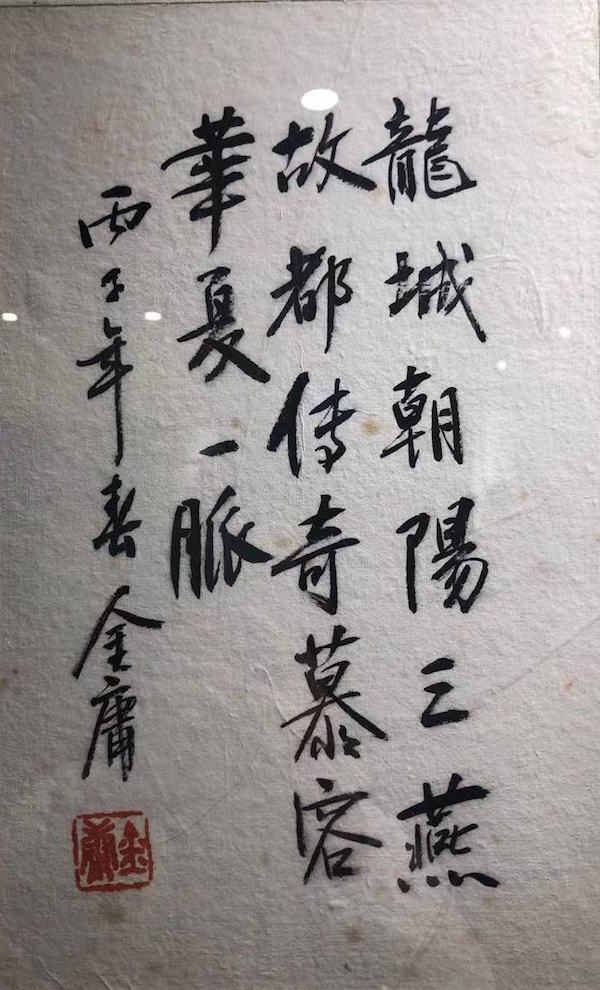 龍城朝陽三燕
故都傳奇慕容
華夏一脈
丙子年春 金庸
金庸